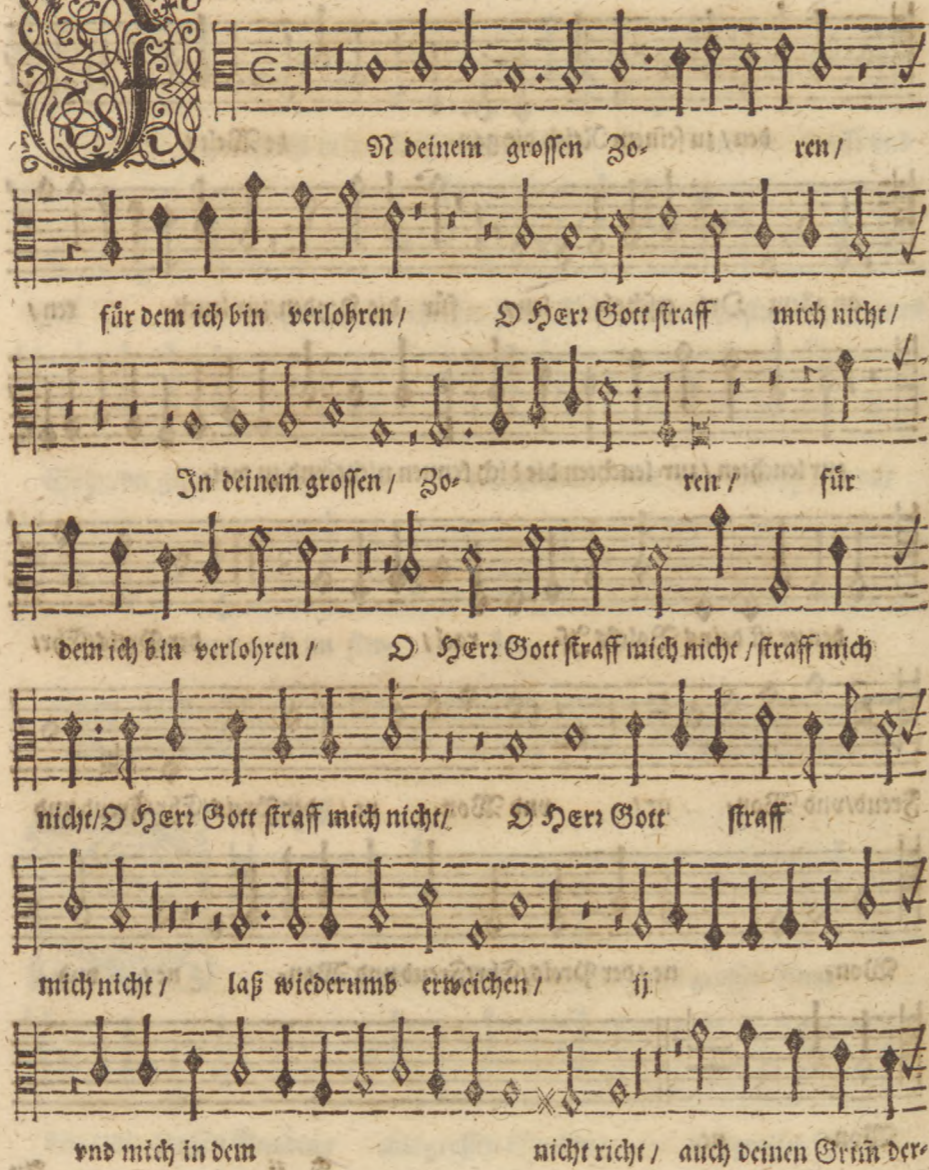 IN deinem grossen Zo- ren /
für dem ich bin verlohren / O HErr Gott straff mich nicht /
In deinem grossen / Zo- ren / für
dem ich bin verlohren / O HErr Gott straff mich nicht / straff mich
nicht / O HErr Gott straff mich nicht / O HErr Gott straff
mich nicht / laß wiederumb erweichen / ij
vnd mich in dem nicht richt / auch deinen Grim̃ der-